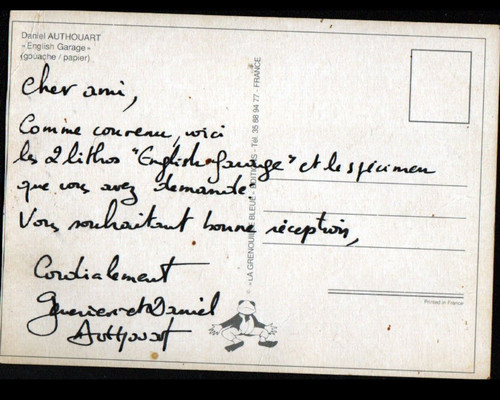 Daniel AUTHOUART
- English Garage -
(gouache / papier)
Cher ami,
Comme convenu, voici
les 2 lithos "English-Garage" et le spécimen
que vous avez demandé.
Vous souhaitant bonne réception,
Cordialement
et Daniel
Authouart
- LA GRENOUILLE BLEUE - EDITIONS - Tél. 35 88 94 77 - FRANCE
Printed in France